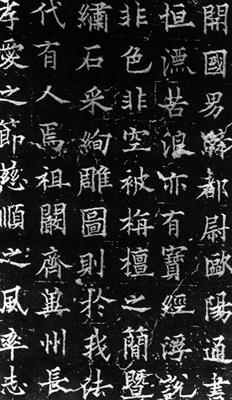 開國男騎都尉歐陽通書
恒漂苦浪亦有寶經浮說
非色非空被栴檀之簡暨
繡石采絢雕圖則於我法
代有人焉祖闞齊冀州長
孝愛之節慈順之風率志